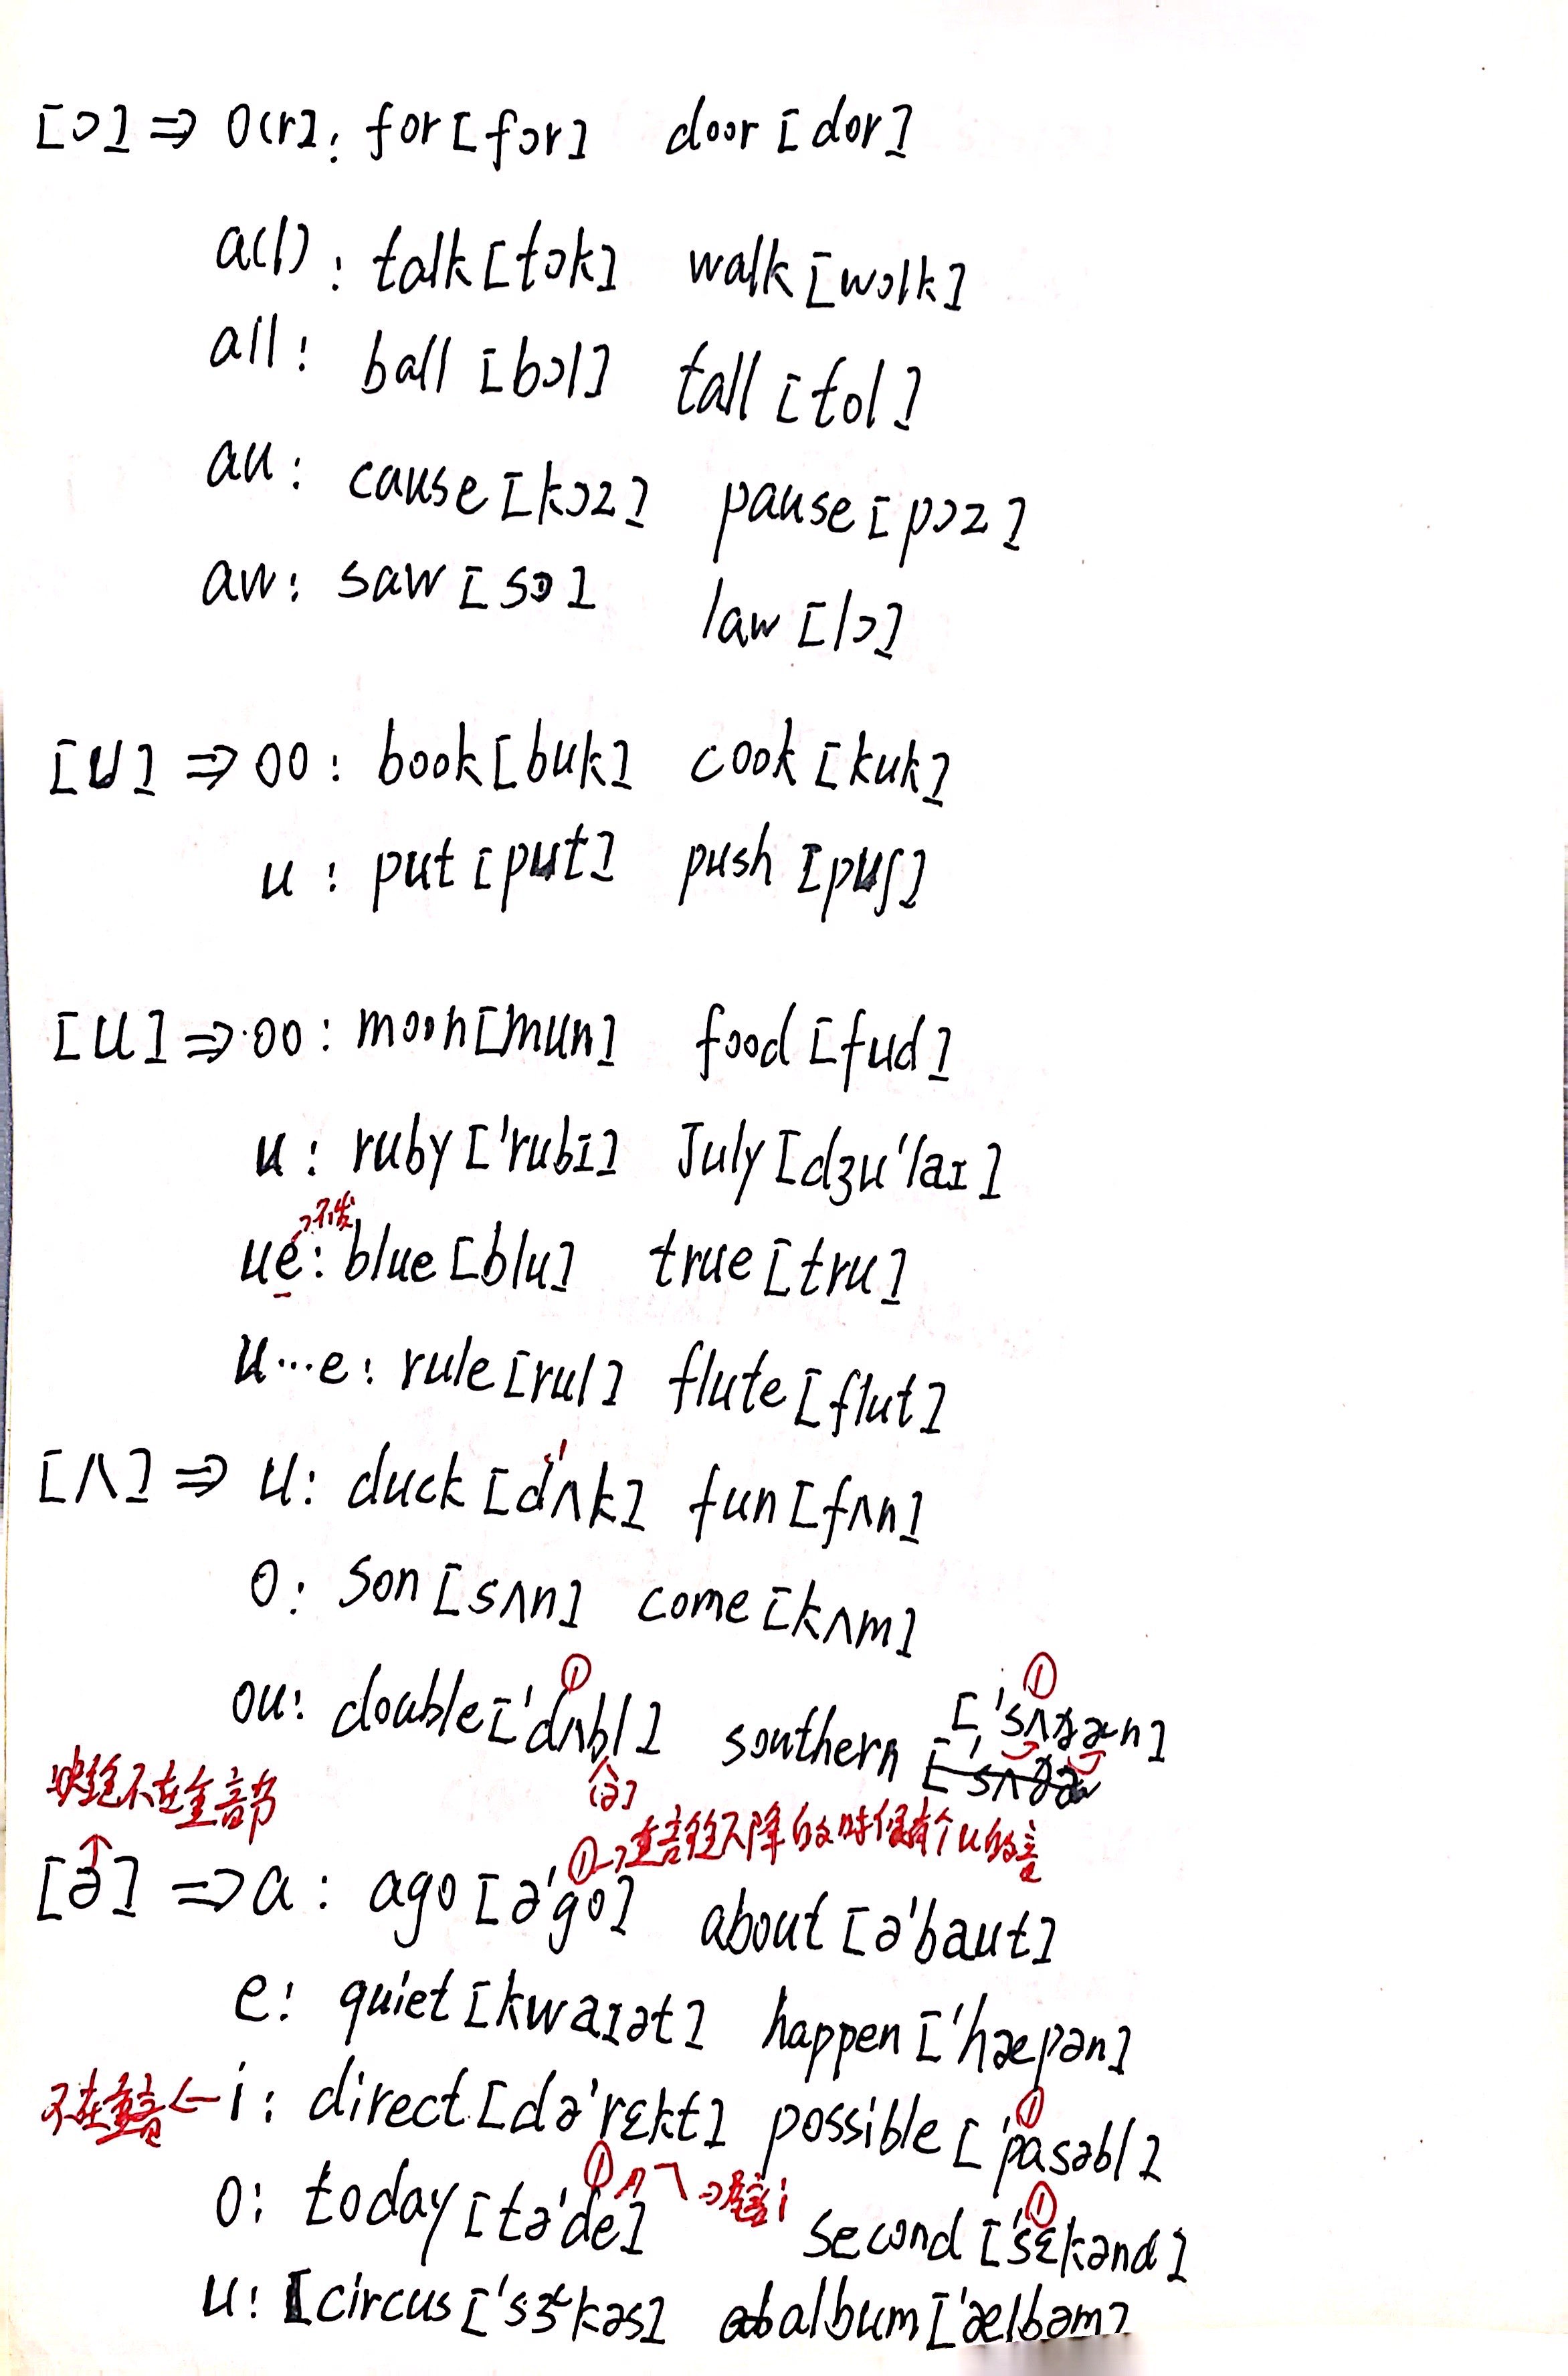 [ɔ] ⇒ o(r]: for [fɔr] door [dor]
a(l): talk [tɔk] walk [wɔlk]
all: ball [bɔl] tall [tol]
au: cause [kɔz] pause [pɔz]
aw: saw [sɔ] law [lɔ]
[U] ⇒ oo: book [buk] cook [kuk]
u: put [put] push [puʃ]
[u] ⇒ oo: moon [mun] food [fud]
u: ruby ['rubɪ] July [dʒu'laɪ]
→不发
ue: blue [blu] true [tru]
u…e: rule [rul] flute [flut]
[ʌ] ⇒ u: duck [d'ʌk] fun [fʌn]
o: son [sʌn] come [kʌm]
ou: double ['dʌbl] ① southern ['sʌðɚn] ①
[ə]
不在重音节
①→重音往下降的时候有个u的音
[ə] ⇒ a: ago [ə'go] about [ə'baut]
e: quiet [kwaɪət] happen ['hæpən]
不在重音 ← i: direct [də'rɛkt] possible ['pɑsəbl] ①
o: today [tə'de] ① ⇒尾音i second ['sɛkənd] ①
u: circus ['sɝkəs] album ['ælbəm]